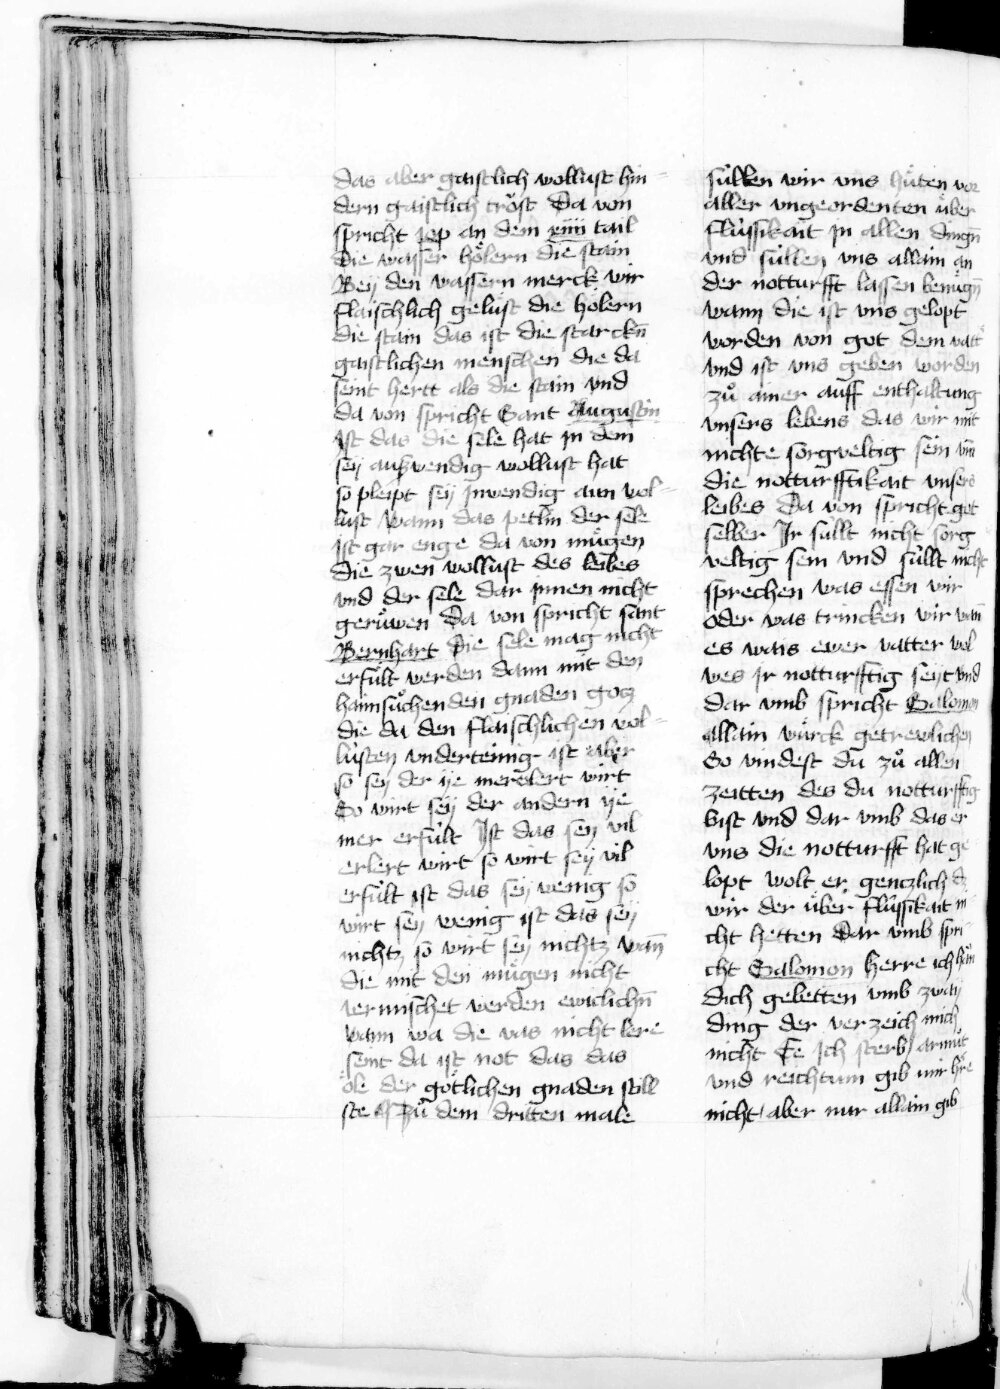 das aber gaistlich wollust hin=
dern gaistlich tröst Da von
spricht iop an dem xiiii tail
die wasser hölern die stain
Beÿ den wassern merck wir
flaischlich gelüst die holern
die stain das ist die starckn̄
gaistlichen menschen die da
seint hertt als die stain vnd
da von spricht Sant Augustin
Ist das die sele hat in dem
seÿ auswendig wollust hat
so pleipt seÿ Inwendig ann vol=
lust Wann das petlin der sele
ist gar enge da von mügen
die zwen wollust des leibes
vnd der sele dar innen nicht
gerüwen Da von spricht sant
Bernhart Die sele mag nicht
erfült werden dann mit den
haimsüchenden gnaden gotz
die da den flaischlichen vol=
lüsten vnderteinig ist aber
so seÿ der ÿe mer erlert wirt
So wirt seÿ der andern ÿe
mer erfült Ist das seÿ vil
erlert wirt so wirt seÿ vil
erfült ist das seÿ wenig so
wirt seÿ wenig ist das seÿ
nichtz so wirt seÿ nichtz wan̄
die mit den mügen nicht
vermischet werden ewiclichn̄
Wann wa die vas nicht lere
seint da ist not das das
öle der götlichen gnaden still
ste Zů dem dritten male
süllen wir vns hüten vor
aller vngeordenten über
flüssikait In allen dingn̄
vnd süllen vns allain an
der notturfft lassen benügn̄
wann die ist vns gelopt
worden von got dem vatt
vnd ist vns geben worden
zů ainer auff enthaltung
vnsers lebens das wir mit
nichte sorgveltig sein vm̄
die notturfftikait vnsers
leibes Da von spricht got
selber Ir süllt nicht sorg
veltig sein vnd süllt nicht
sprechen was essen wir
oder was trincken wir wan̄
es wais ewer vatter wol
wes Ir notturfftig seÿt vnd
dar vmb spricht Salomon
allain würck getrewlichen
So vindest du zů allen
zeitten des du notturfftig
bist vnd dar vmb das er
vns die notturfft hat ge
lopt wolt er genczlich dz
wir der über flüssikait ni
cht hetten Dar vmb spri
cht Salomon Herre ich han
dich gebetten vmb zwaÿ
ding der verzeich mich
nicht Ee Ich sterb armüt
vnd reichtum gib mir hͤre
nicht aber nur allain gib